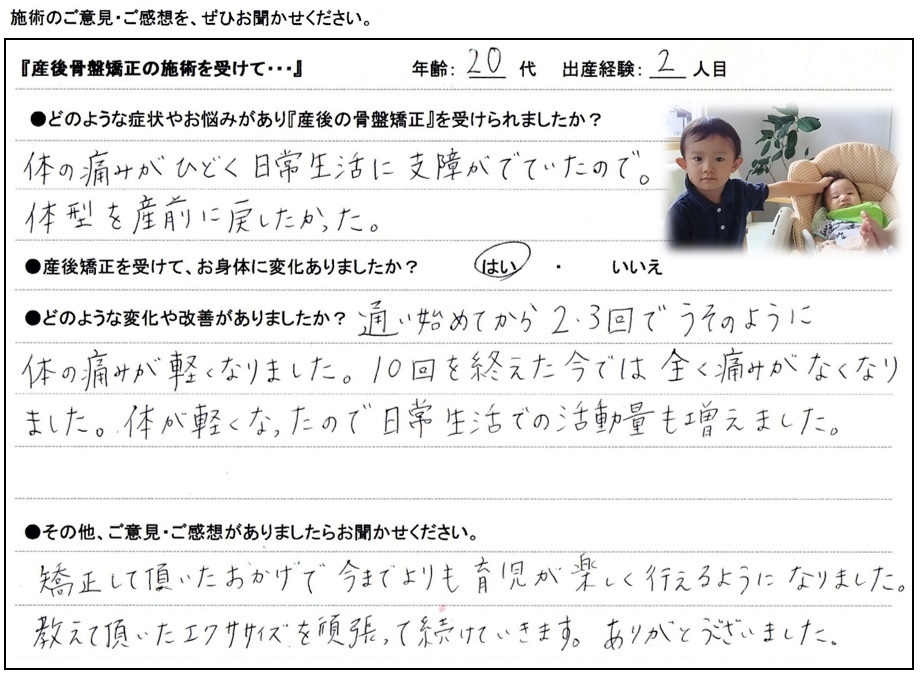 施術のご意見・ご感想を、ぜひお聞かせください。
『産後骨盤矯正の施術を受けて・・・』 年齢: 20 代 出産経験: 2 人目
●どのような症状やお悩みがあり『産後の骨盤矯正』を受けられましたか？
体の痛みがひどく日常生活に支障がでていたので。
体型を産前に戻したかった。
●産後矯正を受けて、お身体に変化ありましたか？ はい ・ いいえ
●どのような変化や改善がありましたか？ 通い始めてから2・3回でうそのように
体の痛みが軽くなりました。10回を終えた今では全く痛みがなくなり
ました。体が軽くなったので日常生活での活動量も増えました。
●その他、ご意見・ご感想がありましたらお聞かせください。
矯正して頂いたおかげで今までよりも育児が楽しく行えるようになりました。
教えて頂いたエクササイズを頑張って続けていきます。ありがとうございました。